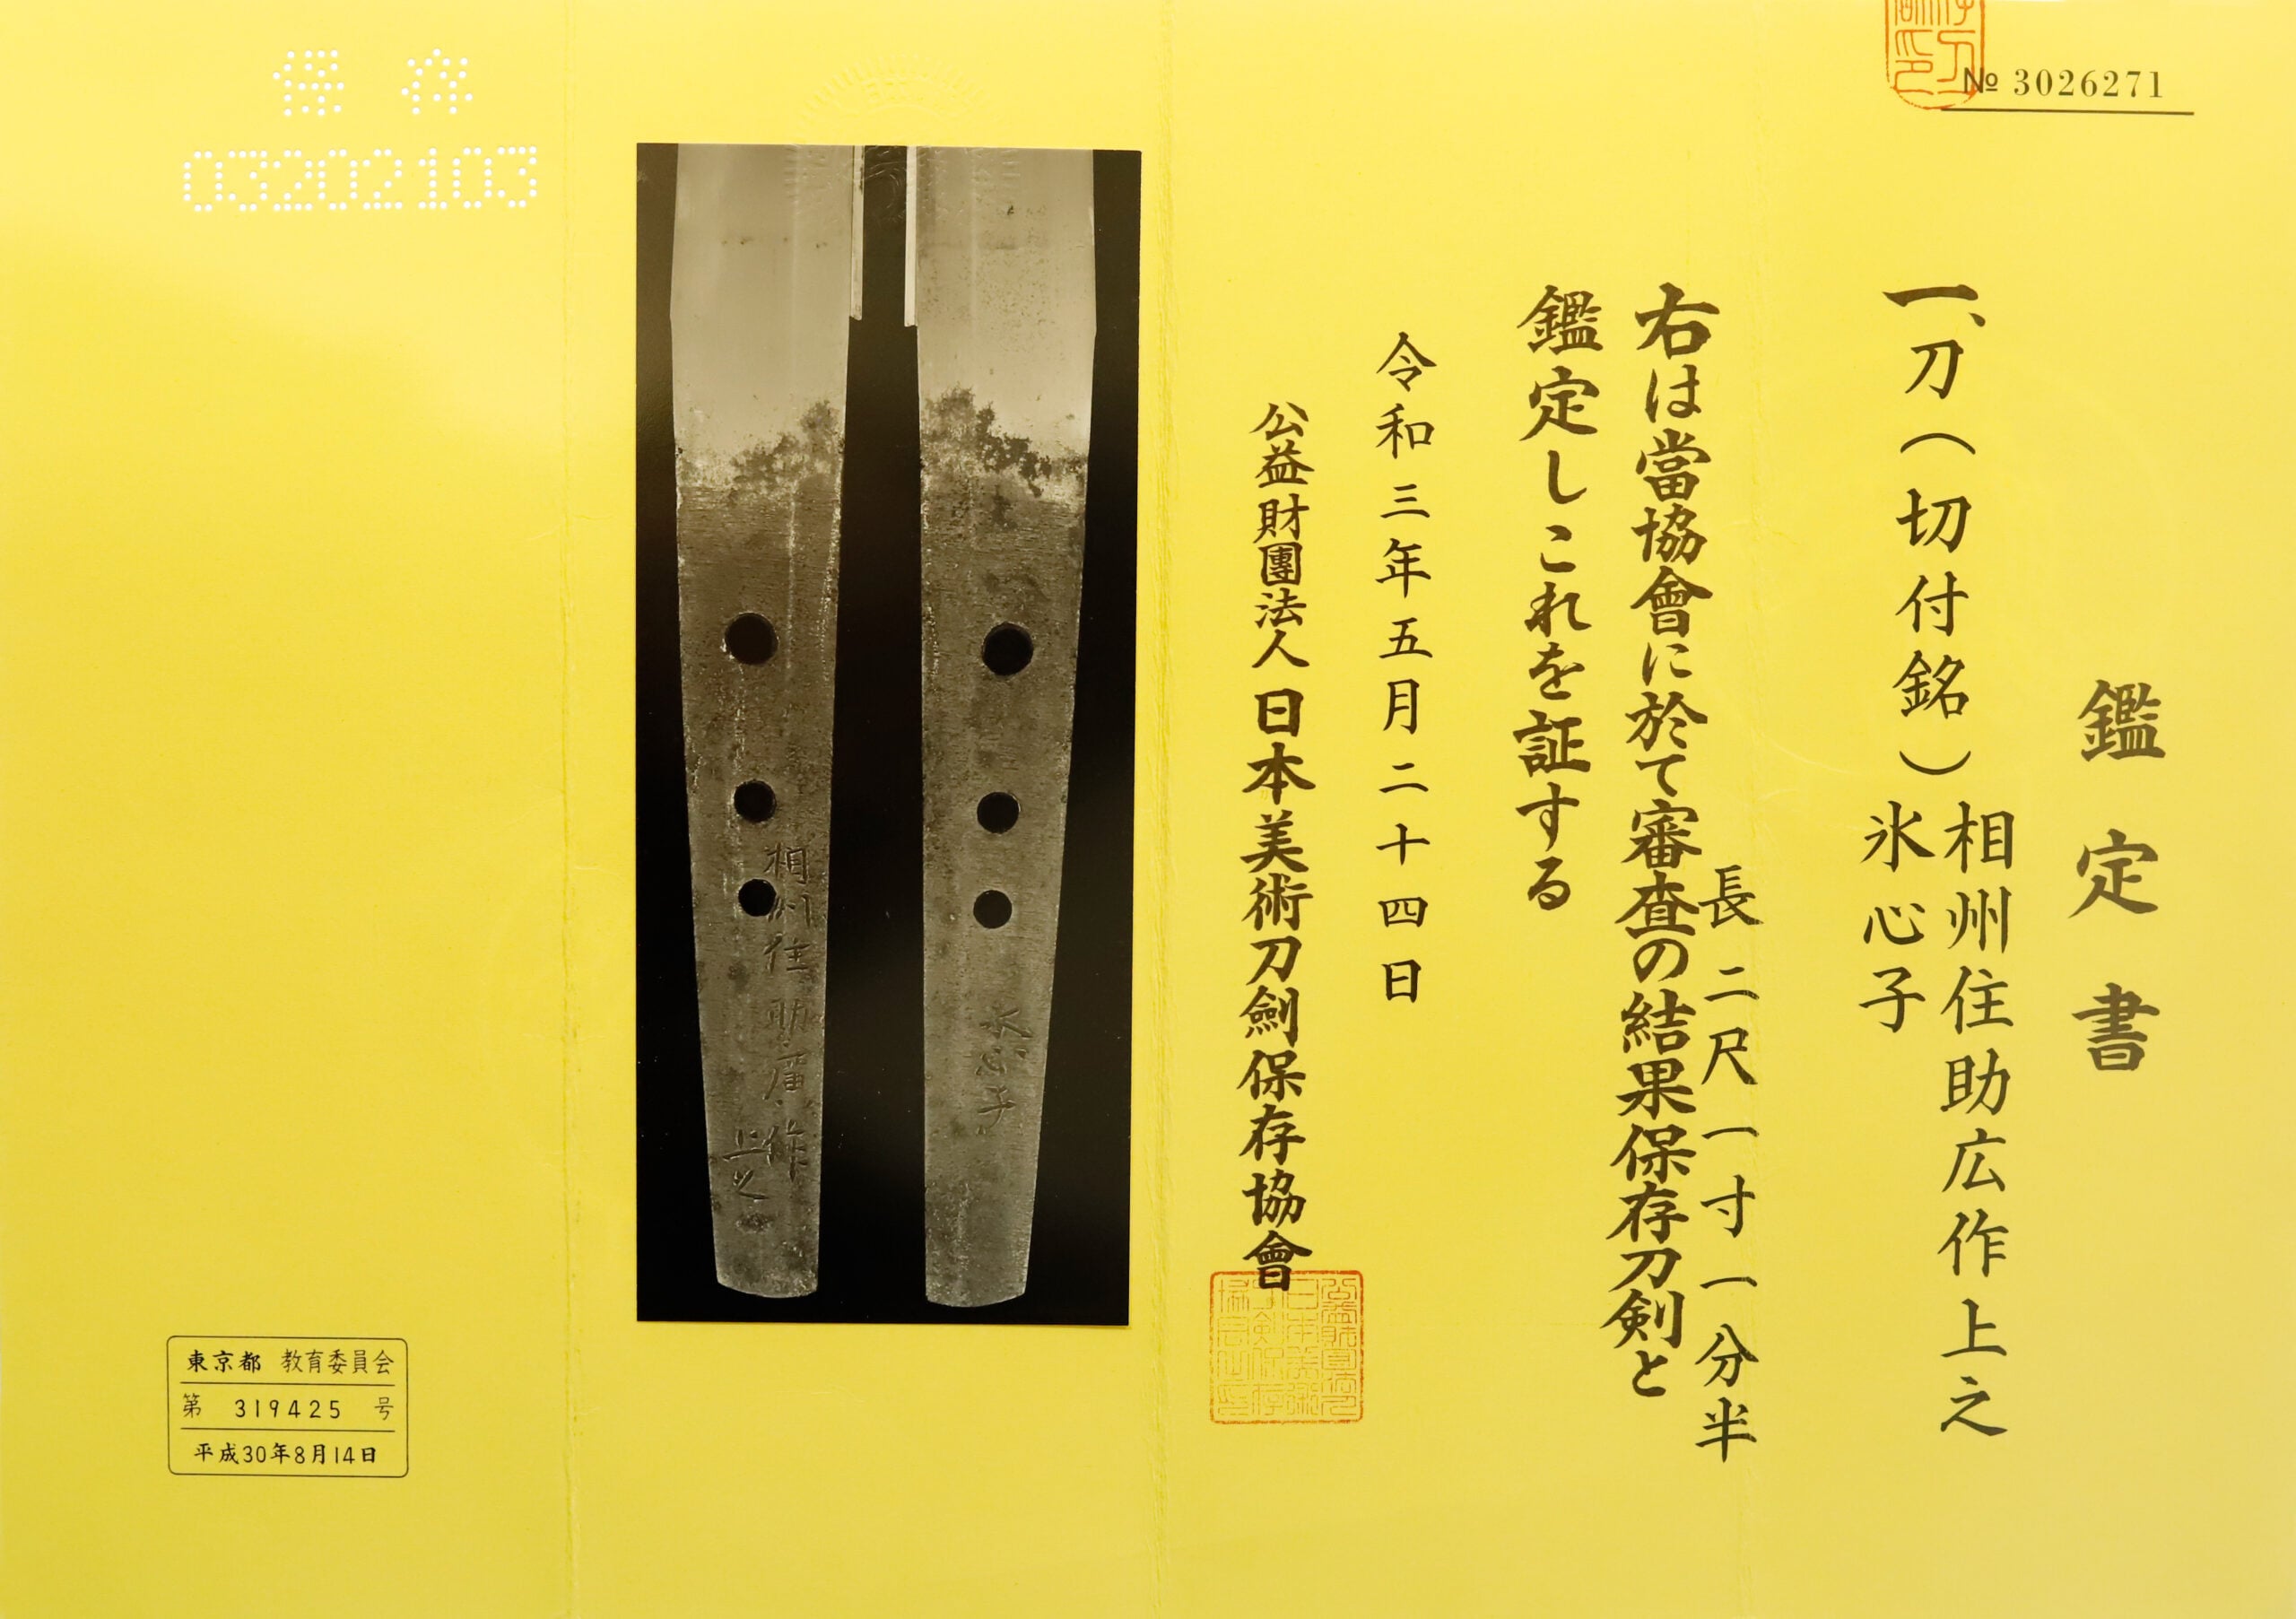 № 3026271
鑑定書
一、刀(切付銘)
相州住助広作上之
氷心子
長 二尺一寸一分半
右は當協會に於て審査の結果保存刀剣と
鑑定しこれを証する
令和三年五月二十四日
公益財團法人 日本美術刀劍保存協會
相州住助廣作
上之
氷心子
保存
03202103
東京都 教育委員会
第 319425 号
平成30年8月14日